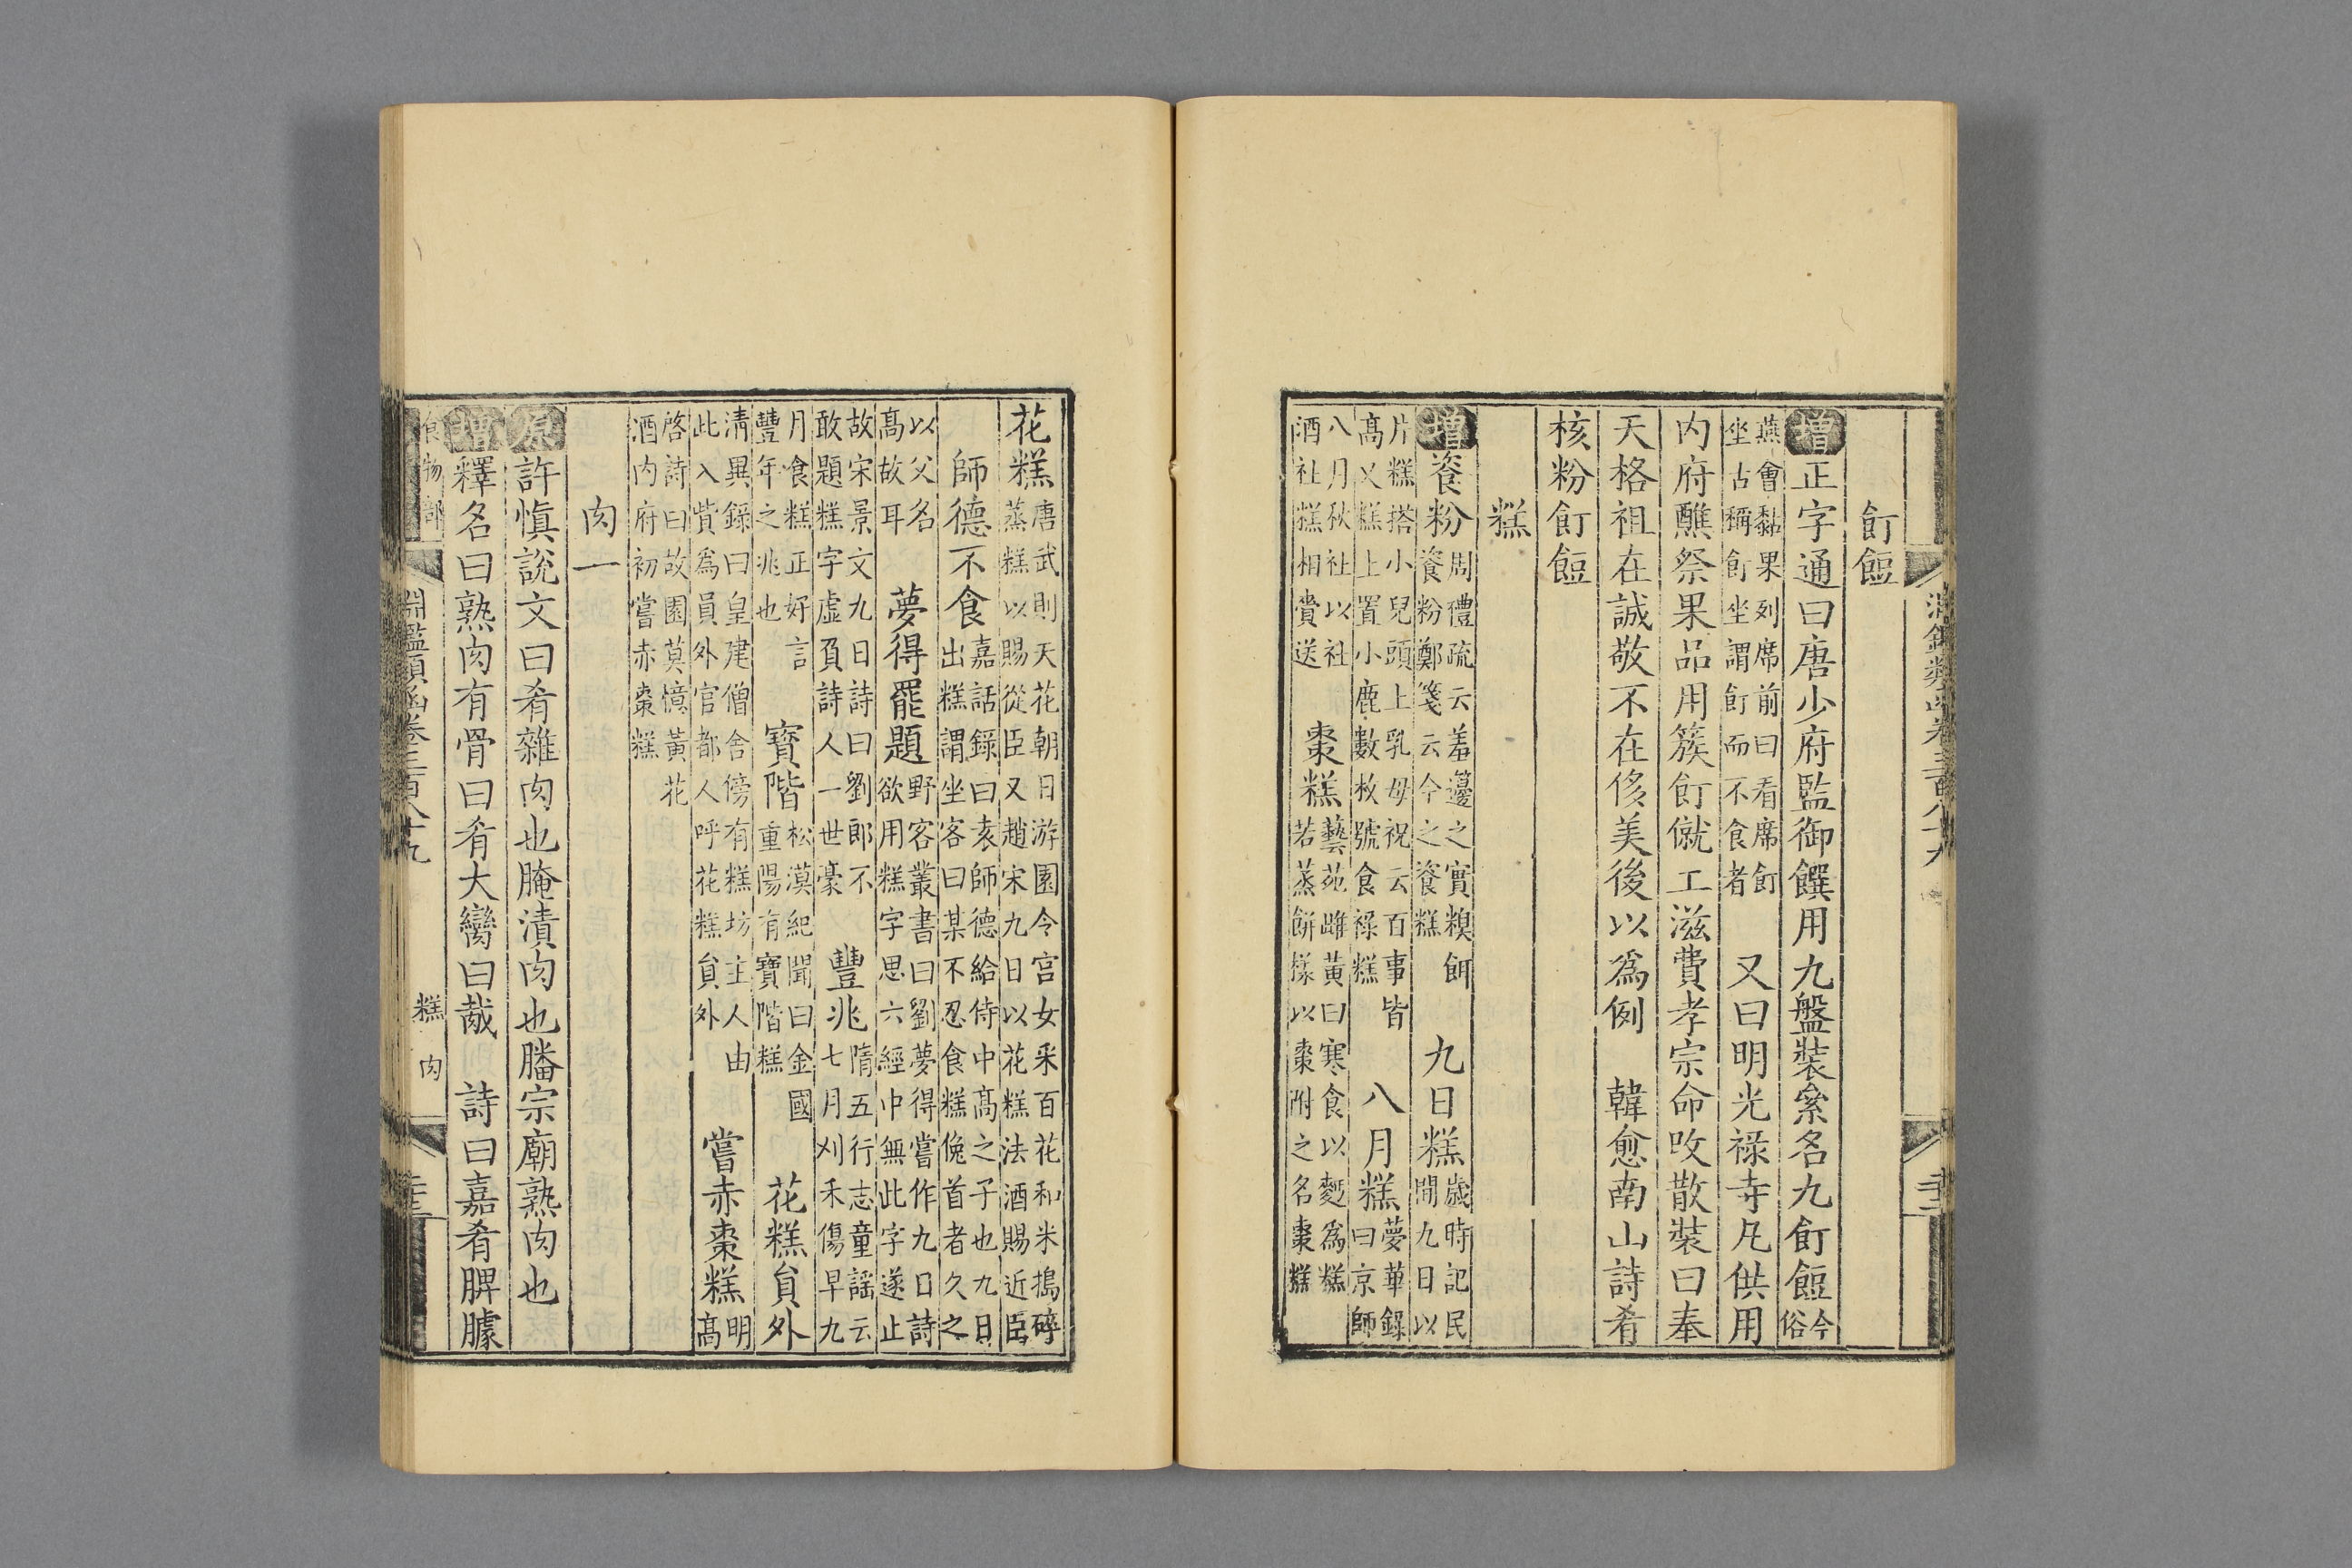 飣餖
增正字通曰唐少府監御饌用九盤裝纍名九飣餖今俗
燕會黏果列席前曰看席飣坐古稱飣坐謂飣而不食者 又曰明光禄寺凡供用
内府醮祭果品用簇飣僦工滋費孝宗命改散裝曰奉
天格祖在誠敬不在侈美後以爲例 韓愈南山詩肴
核粉飣餖
糕
增餈粉周禮疏云羞籩之實糗餌餈粉鄭箋云今之餈糕 九日糕歲時記民間九日以
片糕搭小兒頭上乳母祝云百事皆高以糕上置小鹿數枚號食祿糕 八月糕夢華錄曰京師
八月秋社以社酒社糕相賞送 棗糕藝苑雌黄曰寒食以麪爲糕若蒸餅樣以棗附之名棗糕
花糕唐武則天花朝日游園令宫女采百花和米搗碎蒸糕以賜從臣又趙宋九日以花糕法酒賜近臣
師德不食嘉話錄曰袁師德給侍中高之子也九日出糕謂坐客曰某不忍食糕俛首者久之
以父名高故耳 夢得罷題野客叢書曰劉夢得嘗作九日詩欲用糕字思六經中無此字遂止
故宋景文九日詩曰劉郎不敢題糕字虛負詩人一世豪 豐兆隋五行志童謡云七月刈禾傷早九
月食糕正好言豐年之兆也 寳階松漠紀聞曰金國重陽有寶階糕 花糕負外
清異錄曰皇建僧舍傍有糕坊主人由此入貲爲員外官都人呼花糕負外 嘗赤棗糕明高
啓詩曰故園莫憶黃花酒内府初嘗赤棗糕
肉一
原許愼說文曰肴雜肉也腌漬肉也膰宗廟熟肉也
增釋名曰熟肉有骨曰肴大臠曰胾 詩曰嘉肴脾臄
食物部
淵鑑類函卷三百八十九
糕 肉